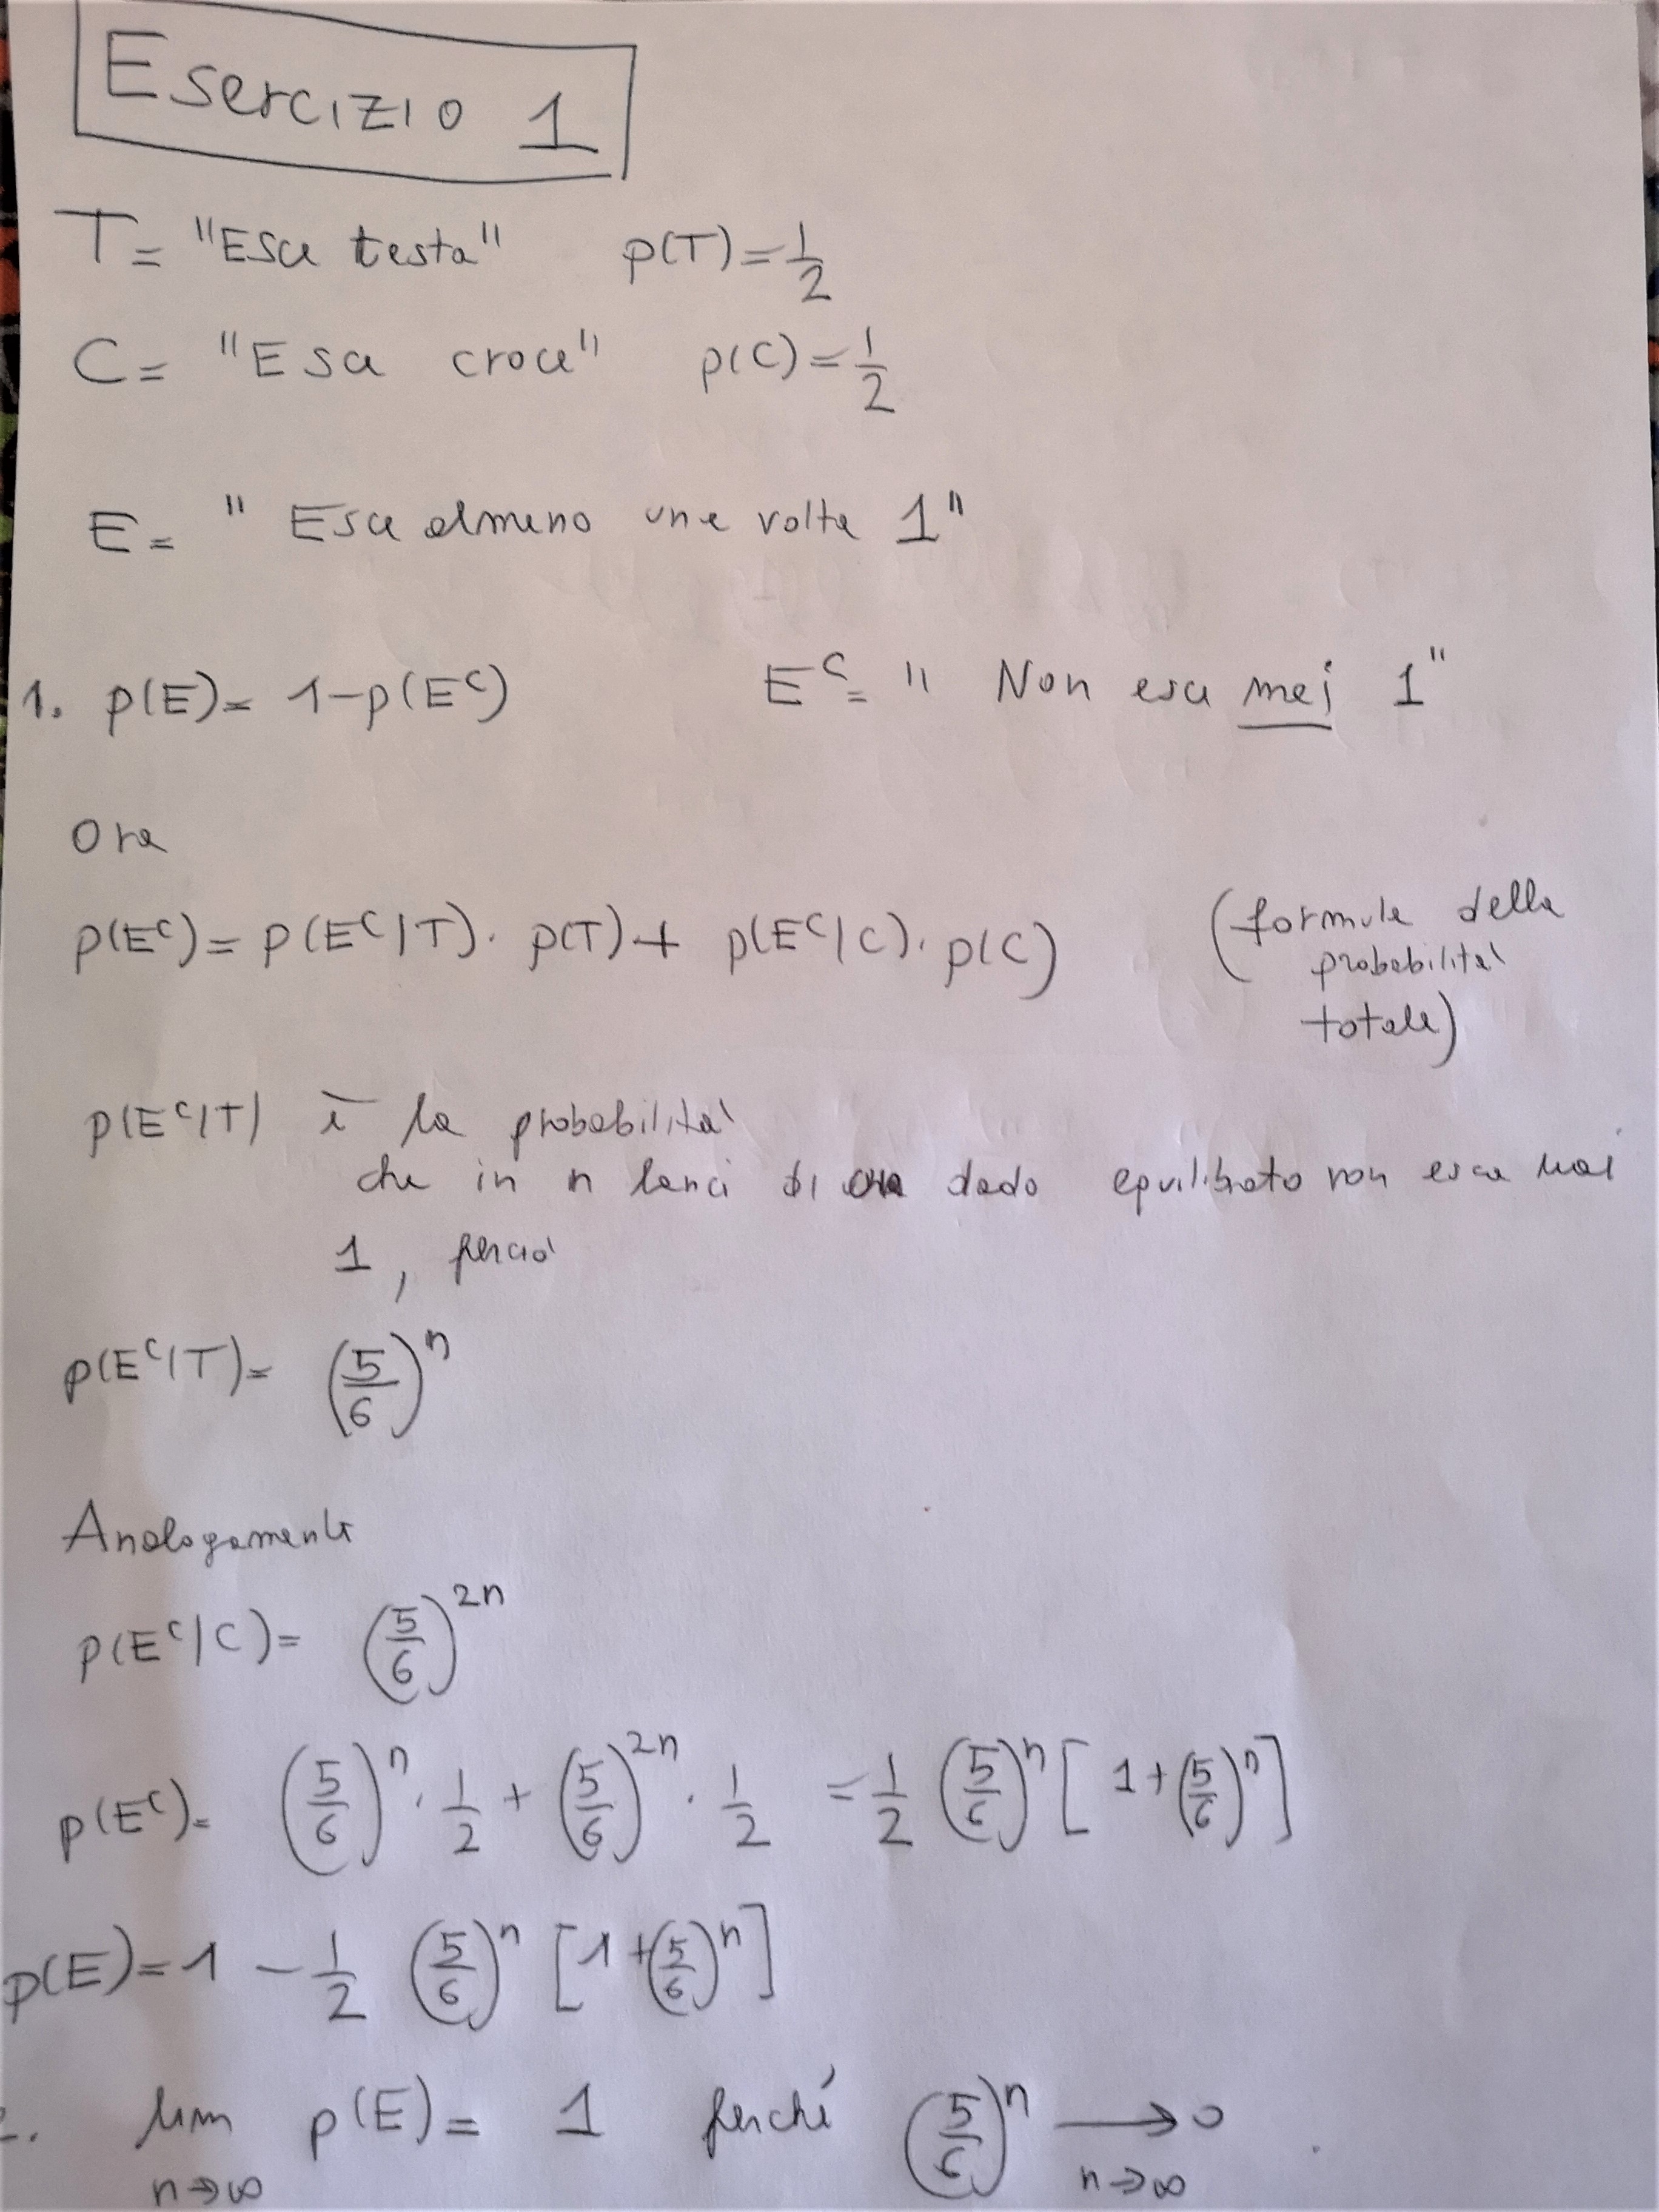 Esercizio 1
T= "Esce testa" p(T)=1/2
C= "Esce croce" p(C)=1/2
E= "Esce almeno una volta 1"
1. p(E)= 1-p(E^C) E^C= "Non esce mai 1"
Ora
p(E^C)= p(E^C|T)· p(T)+ p(E^C|C)· p(C) (formula della
probabilità
totale)
p(E^C|T) è la probabilità
che in n lanci di un dado equilibrato non esca mai
1, perciò
p(E^C|T)= (5/6)^n
Analogamente
p(E^C|C)= (5/6)^2n
p(E^C)= (5/6)^n · 1/2 + (5/6)^2n · 1/2 = 1/2 (5/6)^n [1+(5/6)^n]
p(E)=1 - 1/2 (5/6)^n [1+(5/6)^n]
2. lim p(E)= 1 perché (5/6)^n → 0
n→∞ n→∞